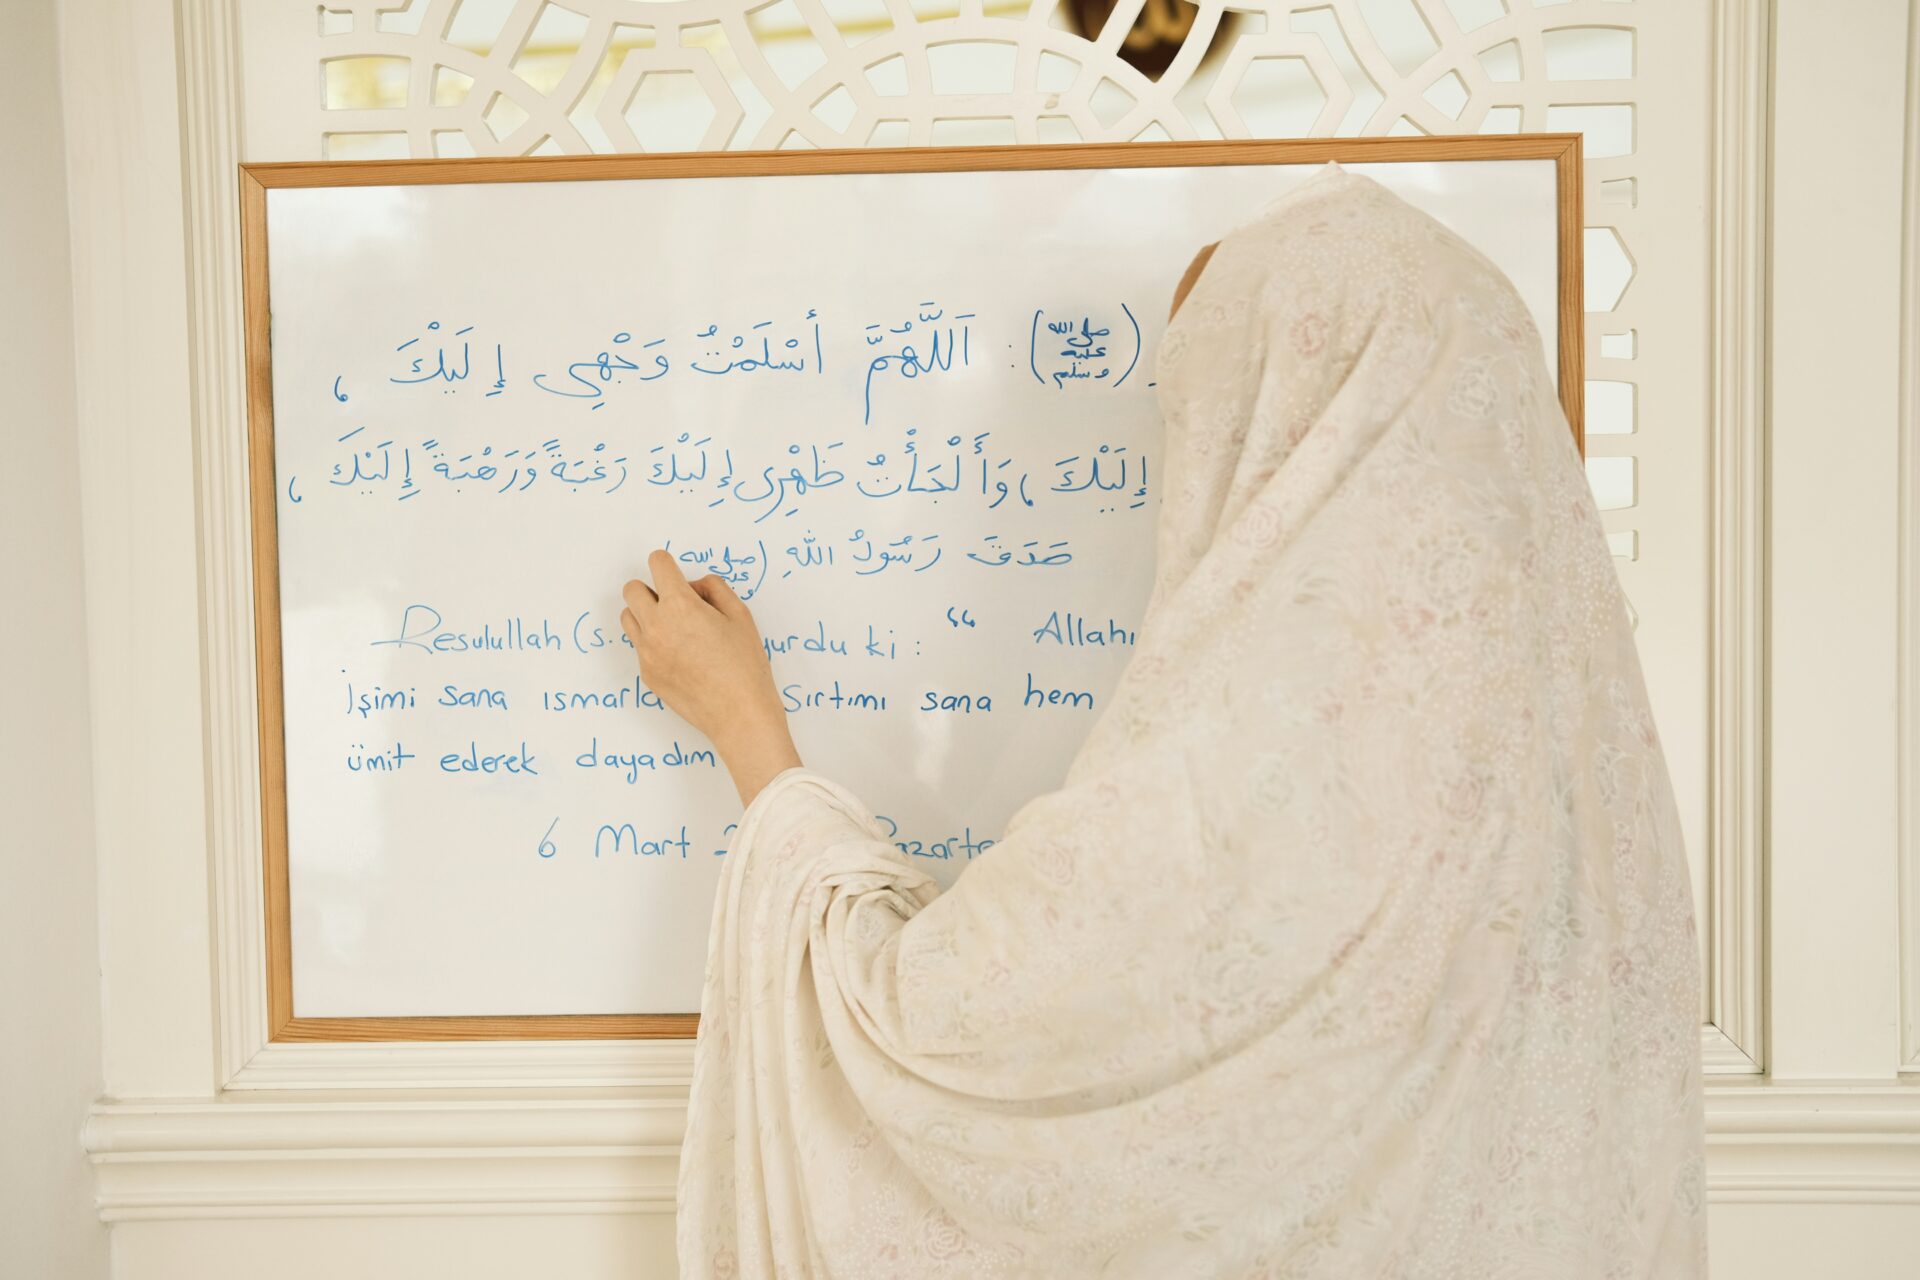 (صلى الله عليه وسلم) : اَللَّهُمَّ أَسْلَمْتُ وَجْهِي إِلَيْكَ ،
إِلَيْكَ ، وَأَلْجَأْتُ ظَهْرِى إِلَيْكَ رَغْبَةً وَرَهْبَةً إِلَيْكَ ،
صَدَقَ رَسُولُ اللهِ (صلى الله
Resulullah (s. yurdu ki : “ Allahı
İşimi sana ısmarla sırtımı sana hem
ümit ederek dayadım
6 Mart